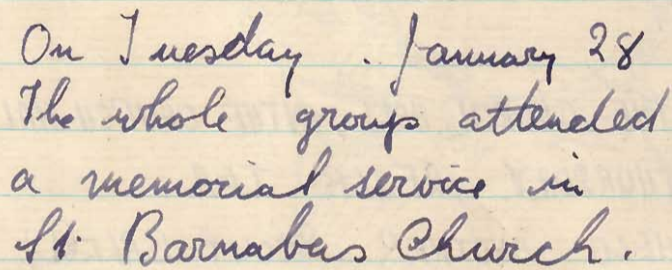 On Tuesday . January 28
The whole group attended
a memorial service in
St. Barnabas Church.